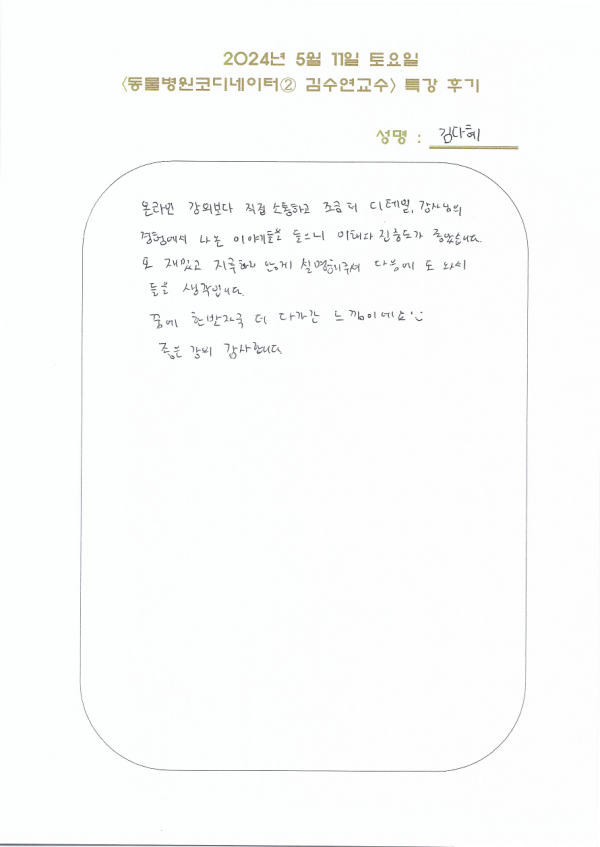 2024년 5월 11일 토요일
<동물병원코디네이터② 김수연교수> 특강 후기
성명 : 김다혜
온라인 강의보다 직접 소통하고 조금 더 디테일, 강사님의
경험에서 나온 이야기들을 들으니 이해나 집중도가 좋았습니다.
또 재밌고 지루하지 않게 설명해주셔 다음에 또 와서
들을 생각입니다.
꿈에 한발자국 더 다가간 느낌이네요
좋은 강의 감사합니다.